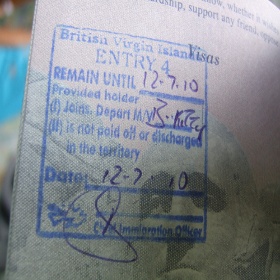 now, whether it
rdship, support any friend, oppo
Visas
British Virgin Islands
ENTRY 4
REMAIN UNTIL 12.7.10
Provided holder
(I) Joins. Depart M/V
(II) is not paid off or discharged
in the territory
Date: 12-7 10
Chief Immigration Officer